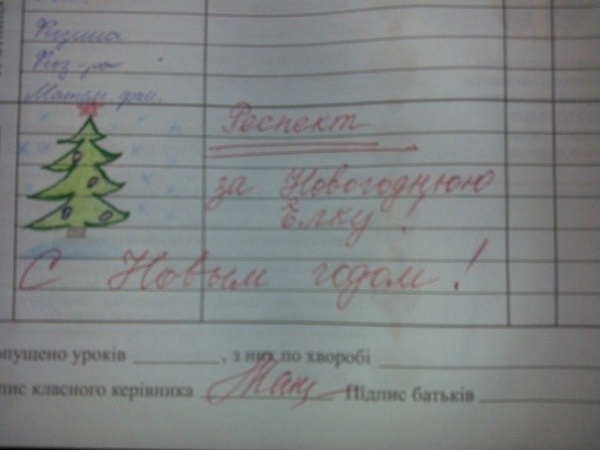 Физика
Физ-ра
Матем
Респект
за Новогоднюю
Ёлку!
С Новым годом!
опущено уроків ________, з них по хворобі
пис класного керівника ________ Підпис батьків